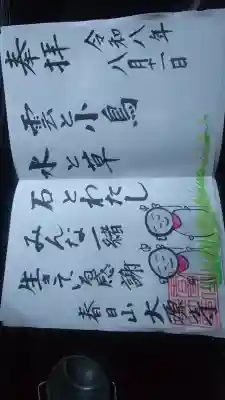 奉拝
令和八年
八月十一日
雲と小鳥
水と草
石とわたし
みんな一緒
生きてい感謝
春日山 大